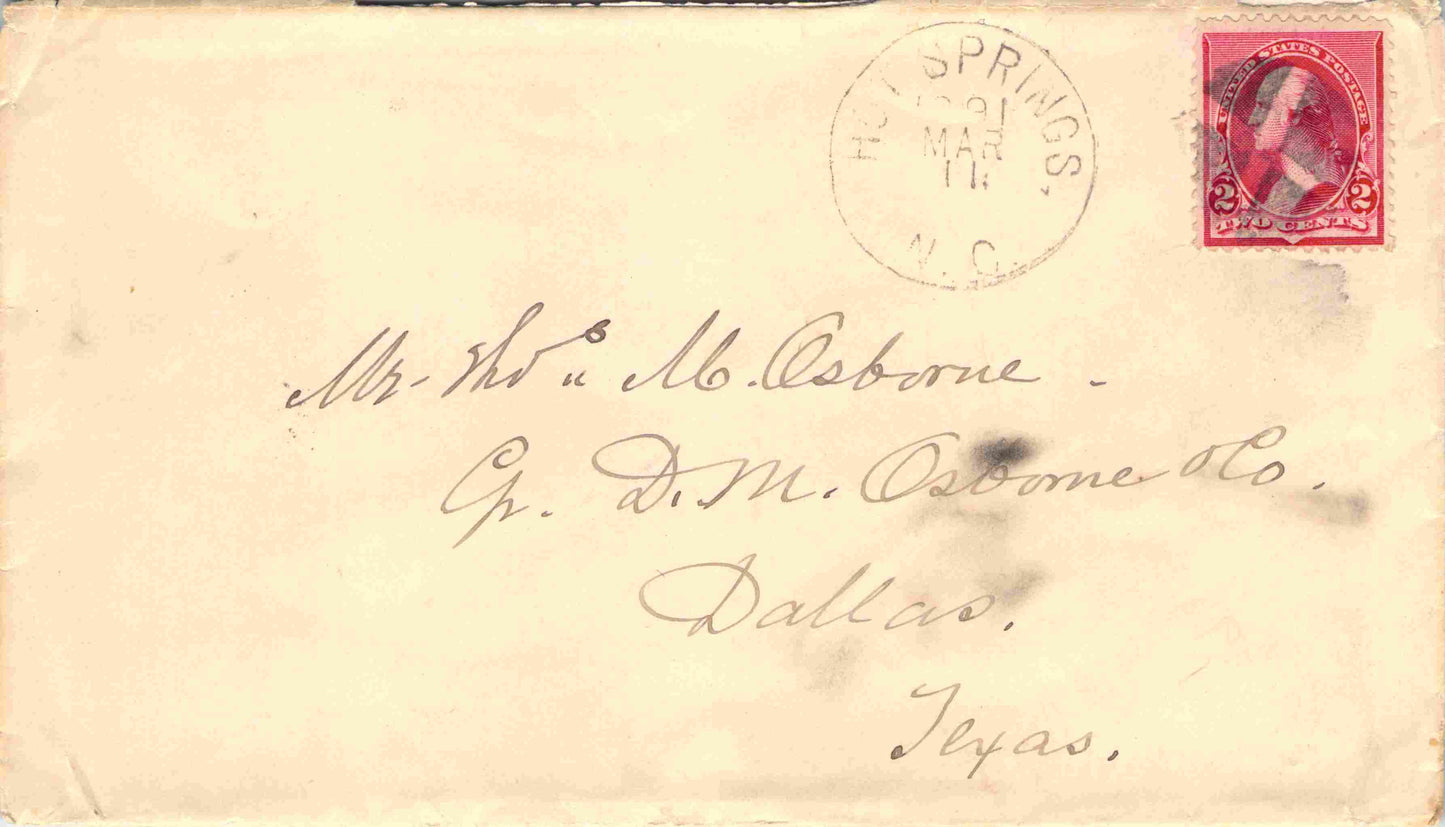 HOT SPRINGS,
1891
MAR
11
N. C.
UNITED STATES POSTAGE
2 2
TWO CENTS
Mr. Thos M. Osborne
Cr. D. M. Osborne & Co.
Dallas.
Texas.